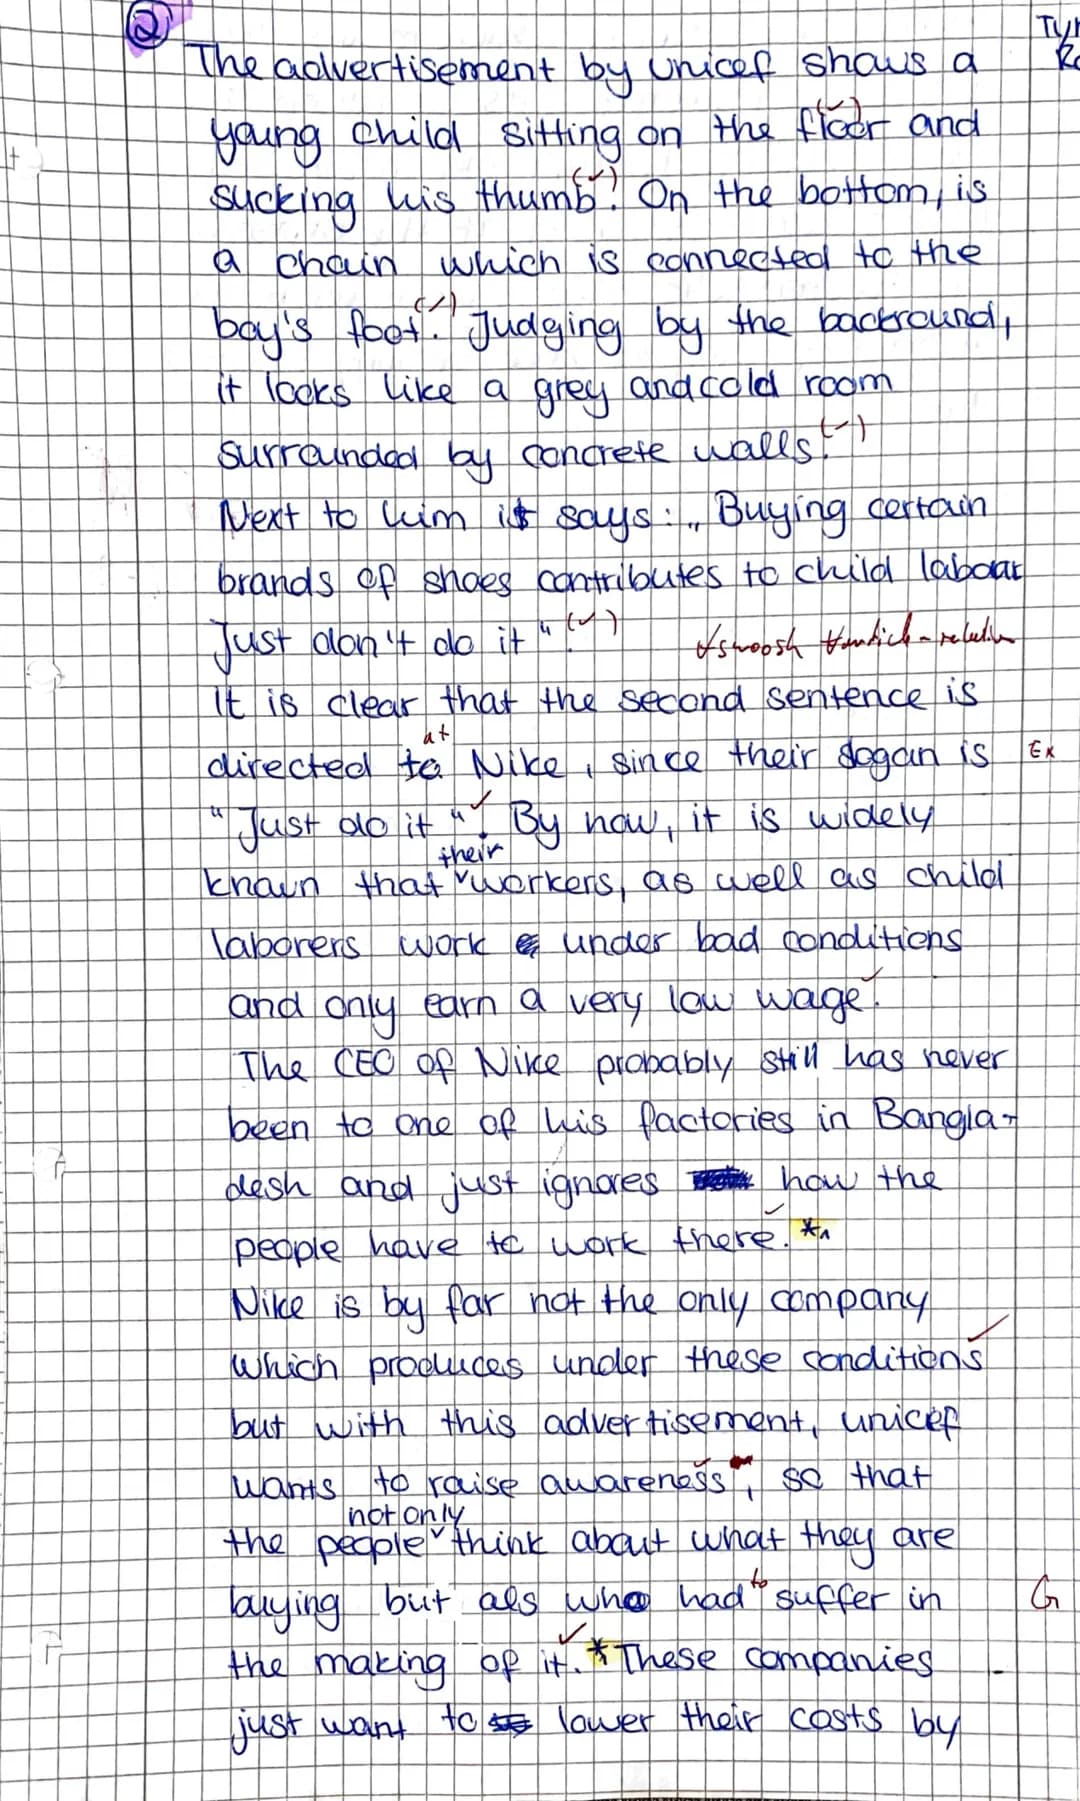 2
The advertisement by unicef shows a
young child sitting on the floor and
sucking his thumb. On the bottom, is
a chain which is connected to the
boy's foot. Judging by the backround,
it looks like a grey and cold room
surrounded by concrete walls.
Next to him it says: „Buying certain
brands of shoes contributes to child labour
Just don't do it"
It is clear that the second sentence is
at
directed to Nike, since their slogan is Ex
"Just do it". By now, it is widely
their
known that workers, as well as child
laborers work under bad conditions
and only earn a very low wage.
The CEO of Nike probably still has never
been to one of his factories in Bangla-
desh and just ignores how the
people have to work there. *1
Nike is by far not the only company
which produces under these conditions
but with this advertisement, unicef
wants to raise awareness, so that
not only
the people think about what they are
buying but als who had to suffer in G
the making of it. * These companies
just want to lower their costs by